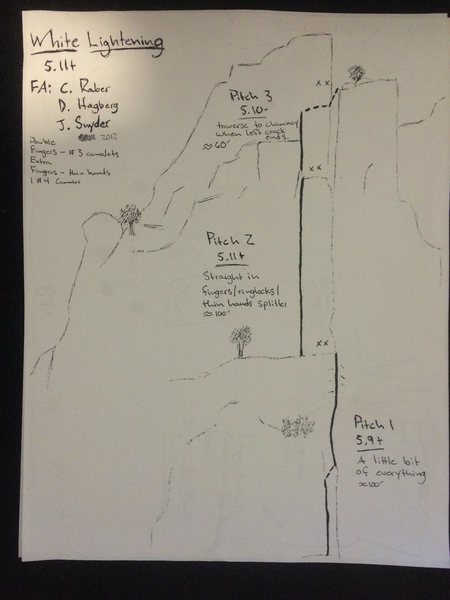 White Lightening
5.11+
FA: C. Raber
D. Hagberg
J. Snyder
2012
Double
Fingers - #3 camalots
Extra
Fingers - thin hands
1 #4 Camalot
x x
Pitch 3
5.10-
traverse to chimney
when left crack
ends.
≈60'
x x
Pitch 2
5.11+
Straight in
fingers/ringlocks/
thin hands splitter
≈100'
x x
Pitch 1
5.9+
A little bit
of everything
≈100'